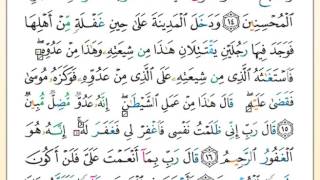 ٱلْمُحْسِنِينَ ١٤ وَدَخَلَ ٱلْمَدِينَةَ عَلَىٰ حِينِ غَفْلَةٍ مِّنْ أَهْلِهَا
فَوَجَدَ فِيهَا رَجُلَيْنِ يَقْتَتِلَانِ هَٰذَا مِن شِيعَتِهِۦ وَهَٰذَا مِنْ عَدُوِّهِۦ
فَٱسْتَغَٰثَهُ ٱلَّذِى مِن شِيعَتِهِۦ عَلَى ٱلَّذِى مِنْ عَدُوِّهِۦ فَوَكَزَهُۥ مُوسَىٰ
فَقَضَىٰ عَلَيْهِ قَالَ هَٰذَا مِنْ عَمَلِ ٱلشَّيْطَٰنِ إِنَّهُۥ عَدُوٌّ مُّضِلٌّ مُّبِينٌ
١٥ قَالَ رَبِّ إِنِّى ظَلَمْتُ نَفْسِى فَٱغْفِرْ لِى فَغَفَرَ لَهُۥٓ إِنَّهُۥ هُوَ
ٱلْغَفُورُ ٱلرَّحِيمُ ١٦ قَالَ رَبِّ بِمَآ أَنْعَمْتَ عَلَىَّ فَلَنْ أَكُونَ